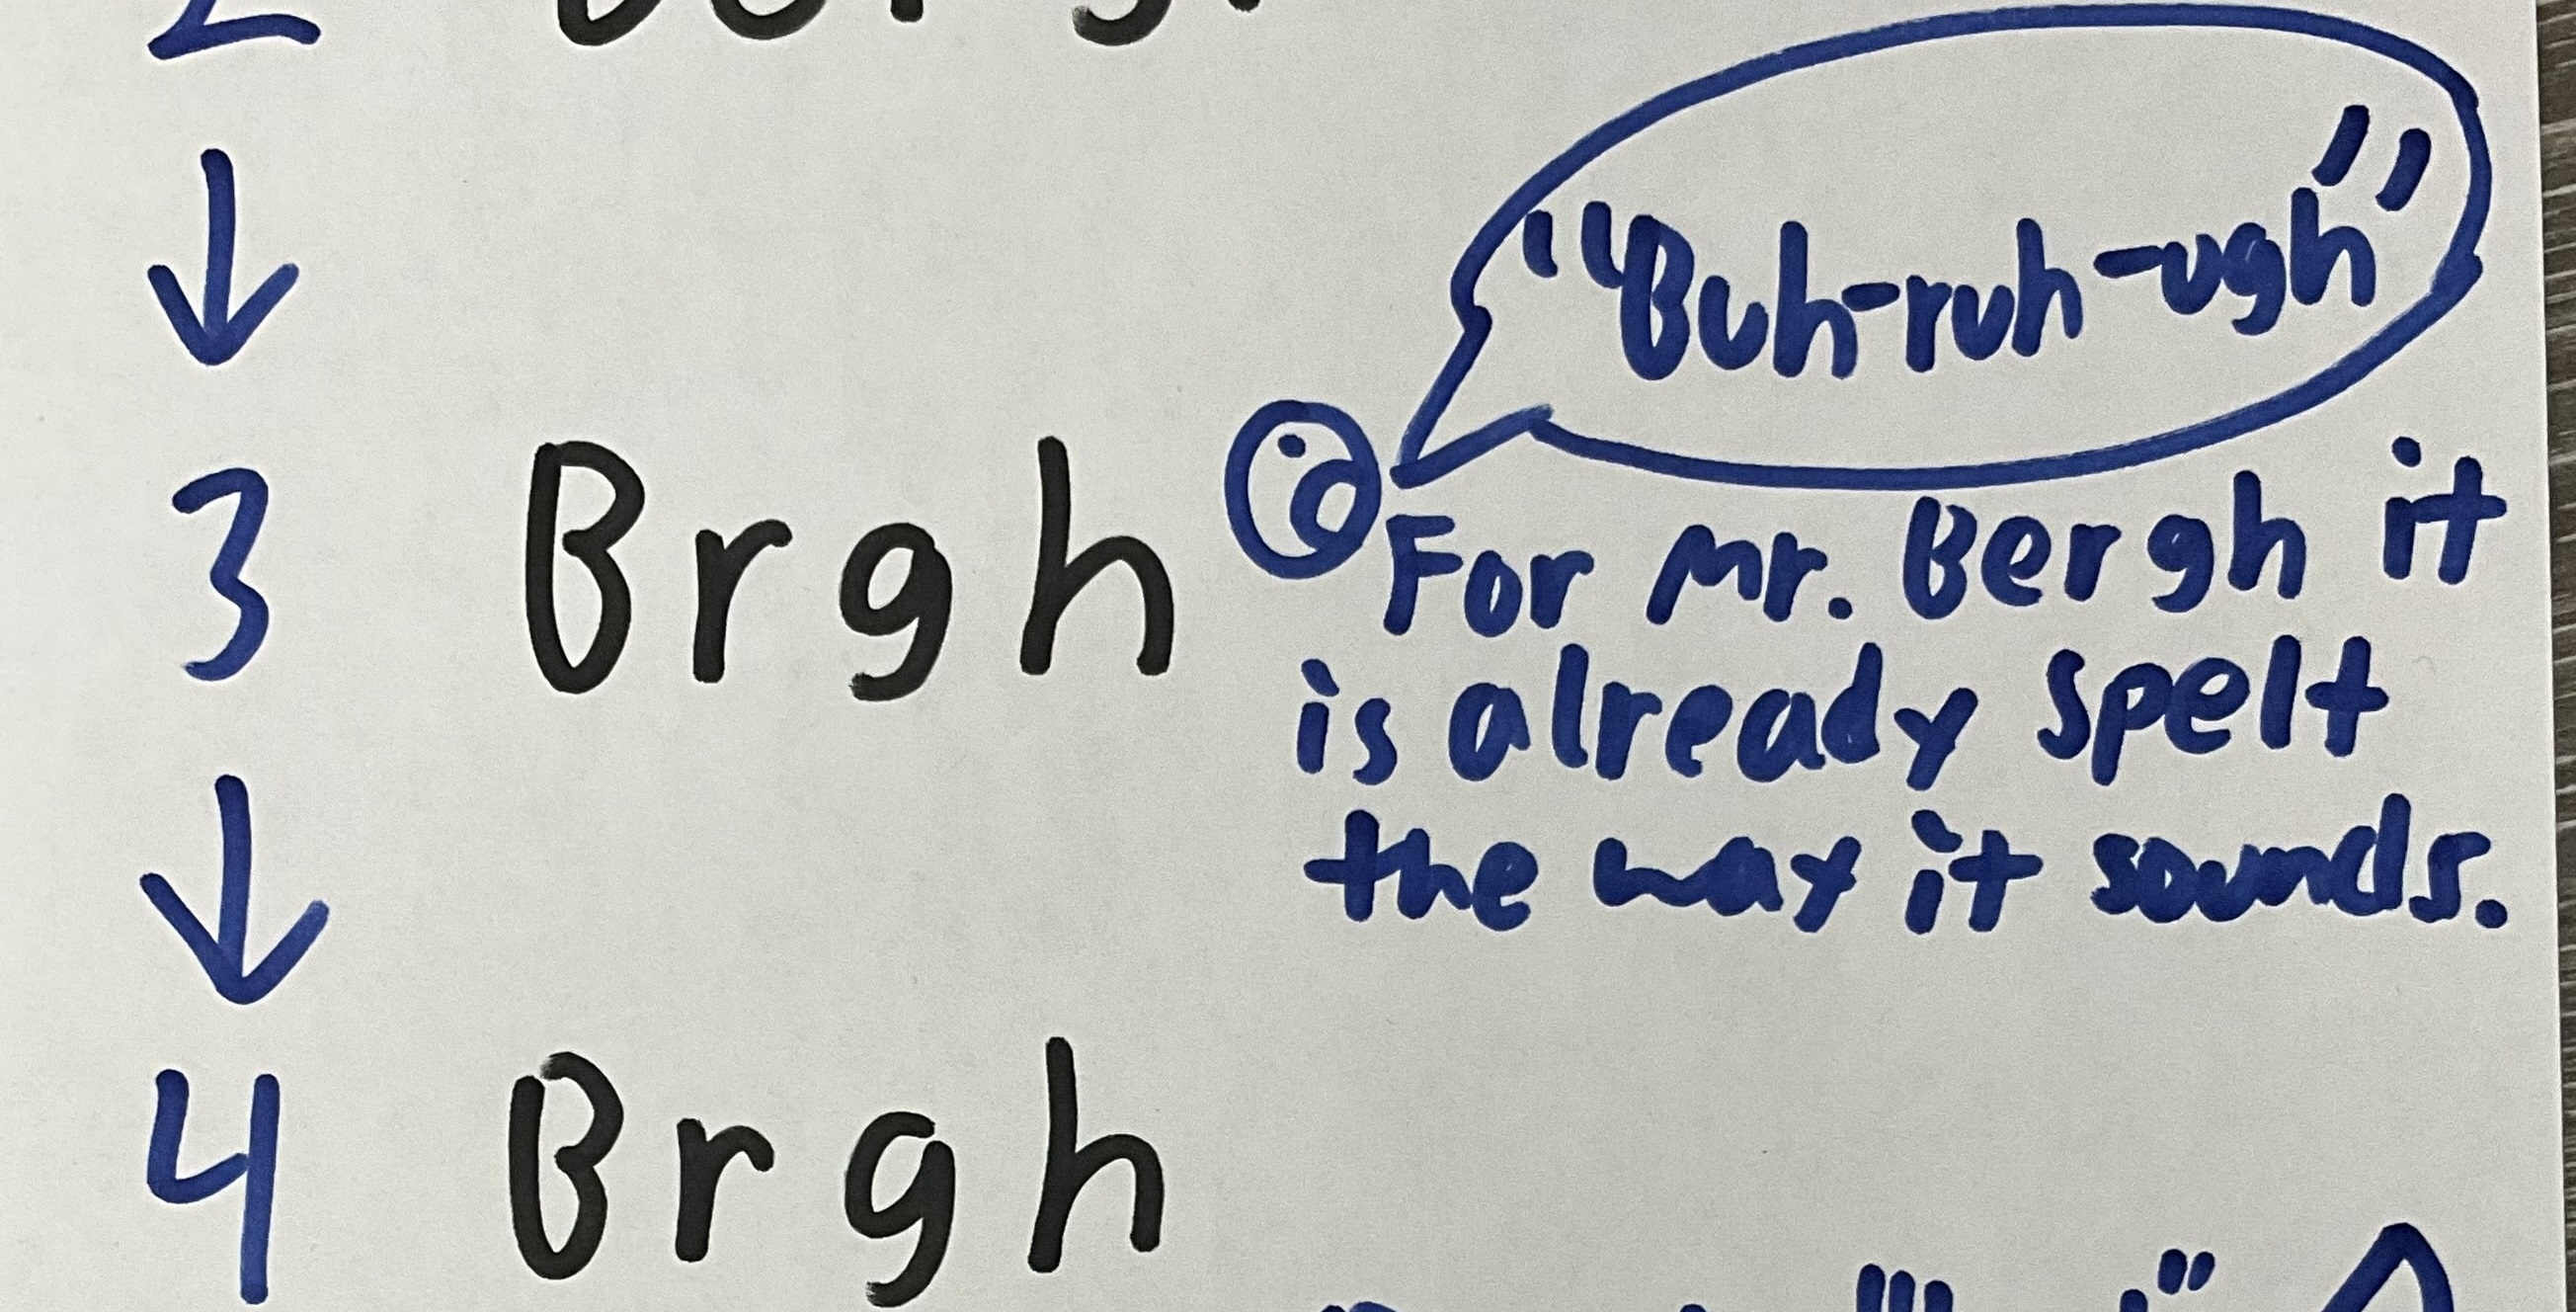 "Buh-ruh-ugh"
3 Brgh
For Mr. Bergh it
is already spelt
the way it sounds.
4 Brgh